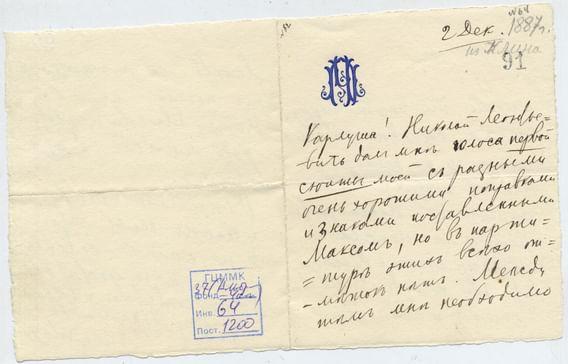 №64
1887 г.
2 Дек.
из Клина
91
Карлуша! Николай Леонтье-
вичъ далъ мнѣ голоса первой
сюиты моей съ разными
очень хорошими поправками
и знаками поставленными
Максомъ, но въ парти-
=турѣ этихъ всѣхъ от-
=мѣтокъ нѣтъ. Между
тѣмъ мнѣ необходимо
ГЦММК
Фонд
Инв. 64
Пост. 1200